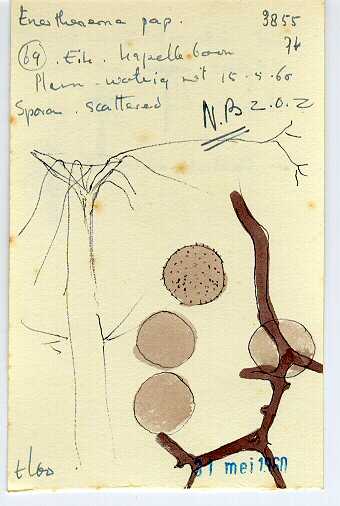 Enerthenema pap. 3855
(69). Eik. Kapelleboom 74
Plasm - waterig wit 15.5.60
Sporen. scattered
N.B 2.0.2
31 mei 1960